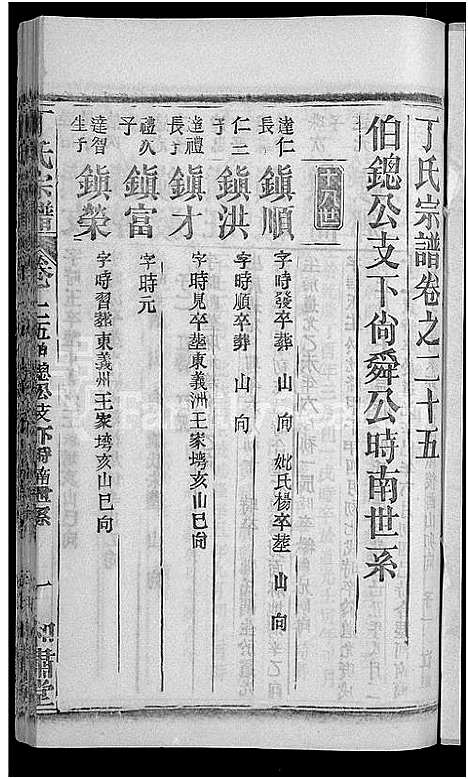 丁氏宗譜卷之二十五
伯鍶公支下尙舜公時南世系
十八世
達仁長子 鎭順 字時發卒葬 山 向 妣氏楊卒塟 山 向
仁二子 鎭洪 字時順卒葬 山 向
達禮長子 鎭才 字時見卒塟東義洲王家塆亥山巳向
禮次子 鎭富 字時元
達智生子 鎭榮 字時習葬東義州王家塆亥山巳向
丁氏宗譜 卷之二五 公支下時南世系 一 肅堂